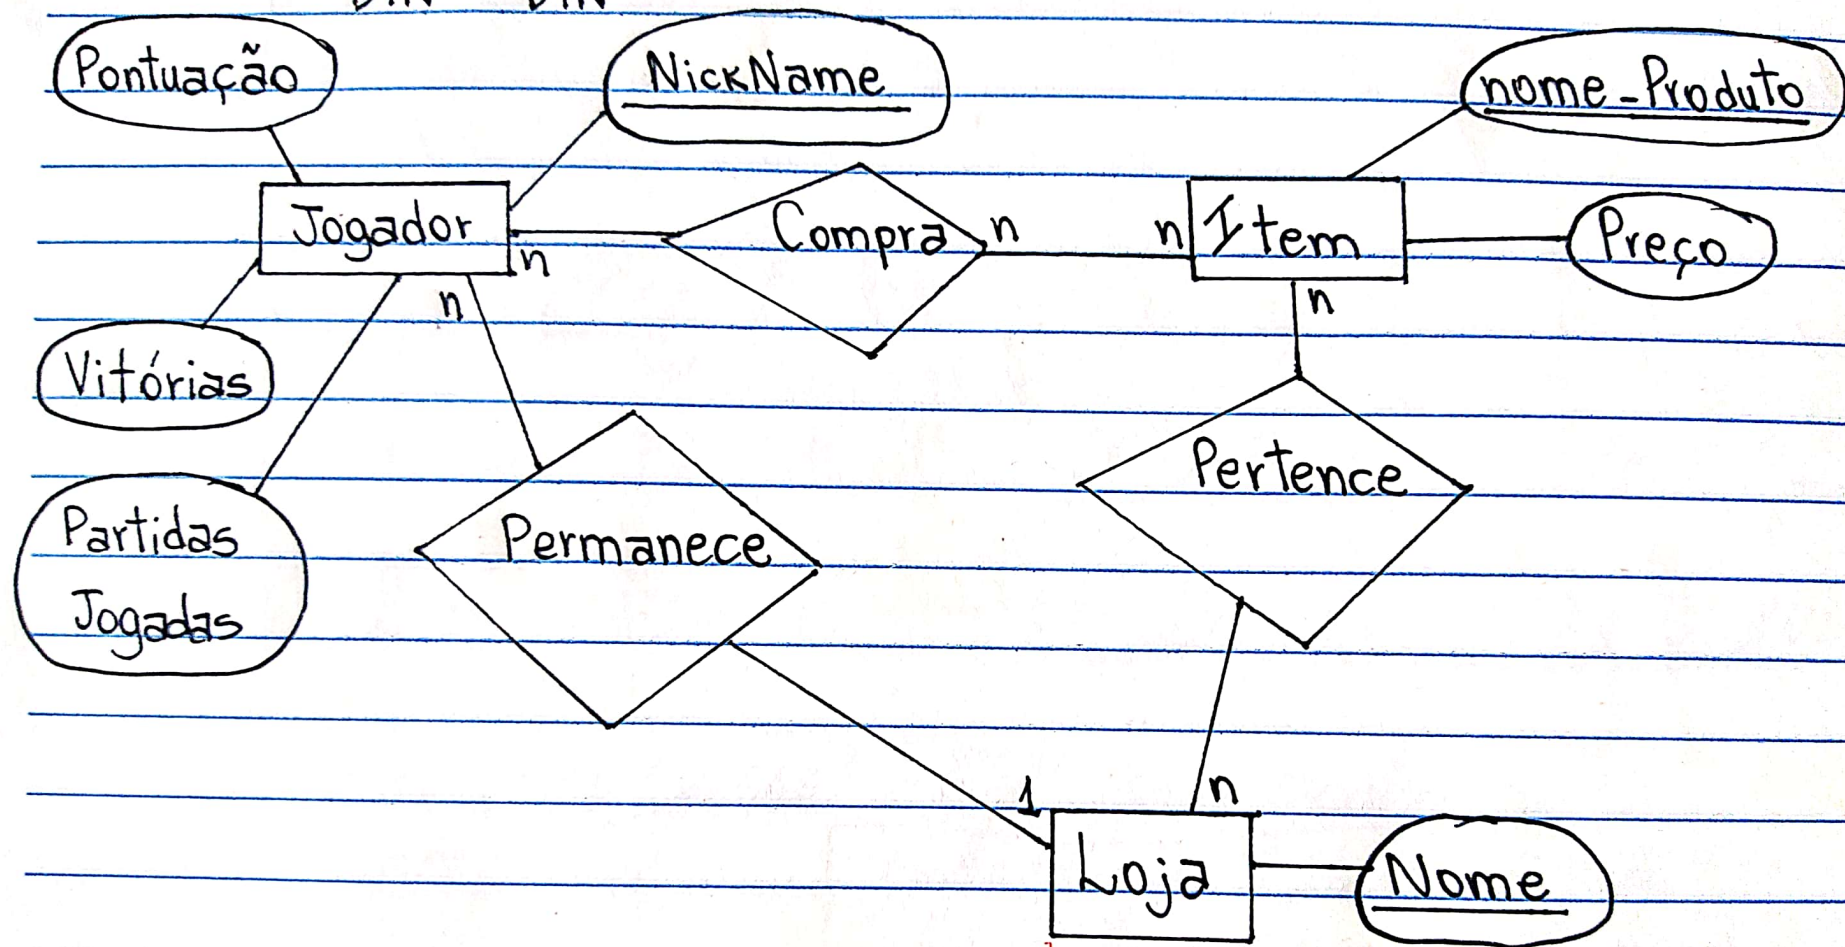 Pontuação
NickName
nome_Produto
Jogador
n
Compra
n
n
Item
Preço
n
n
Vitórias
Pertence
Partidas
Jogadas
Permanece
1
n
Loja
Nome